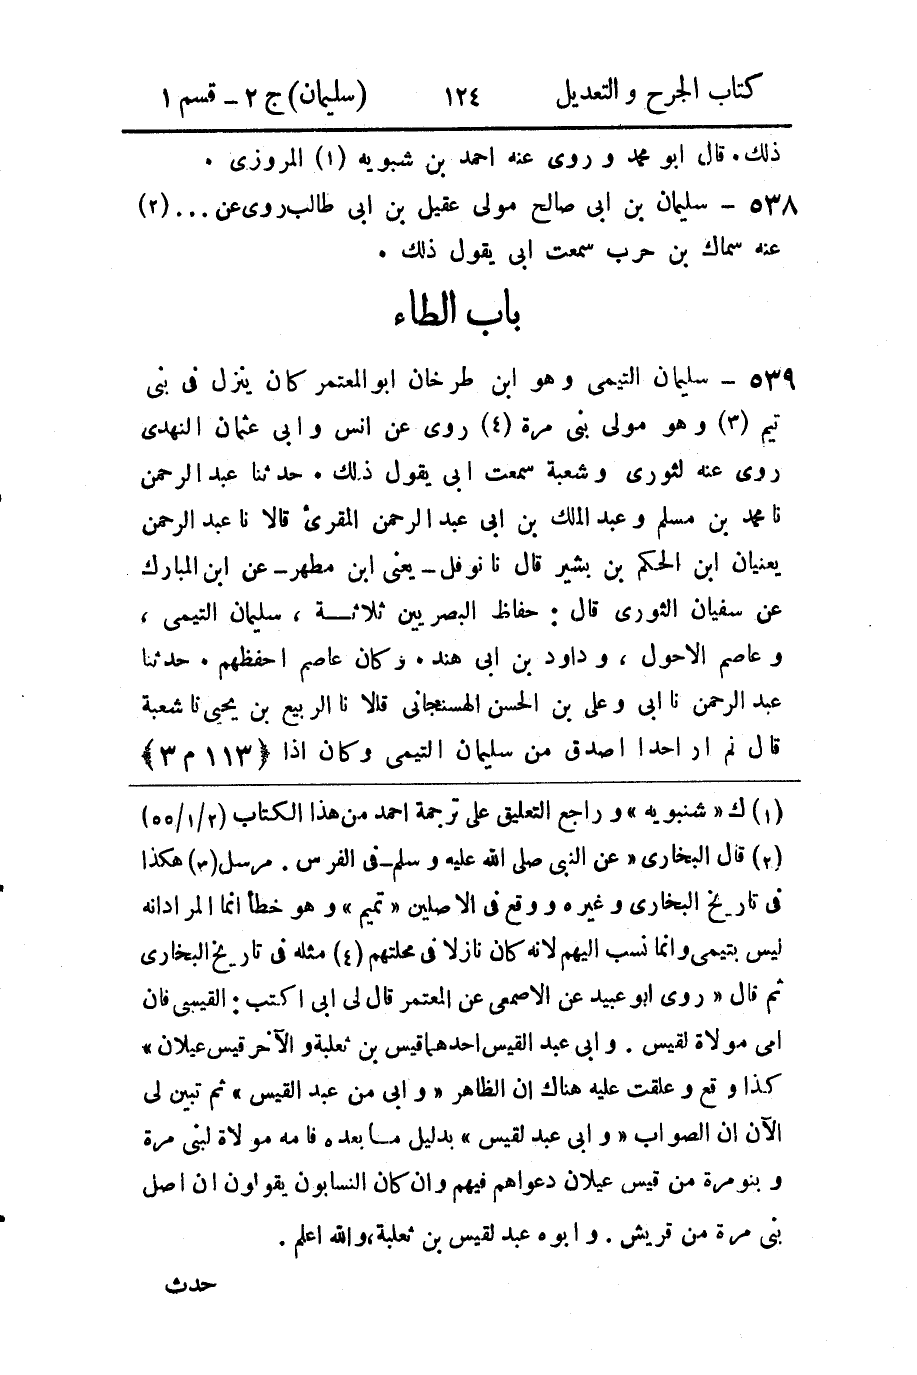 كتاب الجرح و التعديل ١٢٤ (سليمان) ج ٢ - قسم ١
ذلك . قال ابو محمد و روى عنه احمد بن شبويه (١) المروزى .
٥٣٨ - سليمان بن ابى صالح مولى عقيل بن ابى طالب روى عن ... (٢)
عنه سماك بن حرب سمعت ابى يقول ذلك .
باب الطاء
٥٣٩ - سليمان التيمى و هو ابن طرخان ابو المعتمر كان ينزل فى بنى
تيم (٣) و هو مولى بنى مرة (٤) روى عن انس و ابى عثمان النهدى
روى عنه لثورى و شعبة سمعت ابى يقول ذلك . حدثنا عبد الرحمن
نا محمد بن مسلم و عبد الملك بن ابى عبد الرحمن المقرئ قالا نا عبد الرحمن
يعنيان ابن الحكم بن بشير قال نا نوفل - يعنى ابن مطهر - عن ابن المبارك
عن سفيان الثورى قال : حفاظ البصريين ثلاثة ، سليمان التيمى ،
و عاصم الاحول ، و داود بن ابى هند . وكان عاصم احفظهم . حدثنا
عبد الرحمن نا ابى و على بن الحسن الهسنجانى قالا نا الربيع بن يحيى نا شعبة
قال لم ار احدا اصدق من سليمان التيمى وكان اذا ﴿١١٣ م ٣﴾
(١) ك « شنبويه » و راجع التعليق على ترجمة احمد من هذا الكتاب (٥٥/١/٢)
(٢) قال البخارى « عن النبى صلى الله عليه و سلم - فى الفرس . مرسل (٣) هكذا
فى تاريخ البخارى و غيره و وقع فى الاصلين « تميم » و هو خطأ انما المراد انه
ليس بتيمى و انما نسب اليهم لانه كان نازلا فى محلتهم (٤) مثله فى تاريخ البخارى
ثم قال « روى ابو عبيد عن الاصمعى عن المعتمر قال لى ابى اكتب : القيسى فان
امى مولاة لقيس . و ابى عبد القيس احدهما قيس بن ثعلبة و الآخر قيس عيلان »
كذا و قع و علقت عليه هناك ان الظاهر « و ابى من عبد القيس » ثم تبين لى
الآن ان الصواب « و ابى عبد لقيس » بدليل ما بعده فامه مولاة لبنى مرة
و بنو مرة من قيس عيلان دعواهم فيهم و ان كان النسابون يقولون ان اصل
بنى مرة من قريش . و ابوه عبد لقيس بن ثعلبة، والله اعلم .
حدث